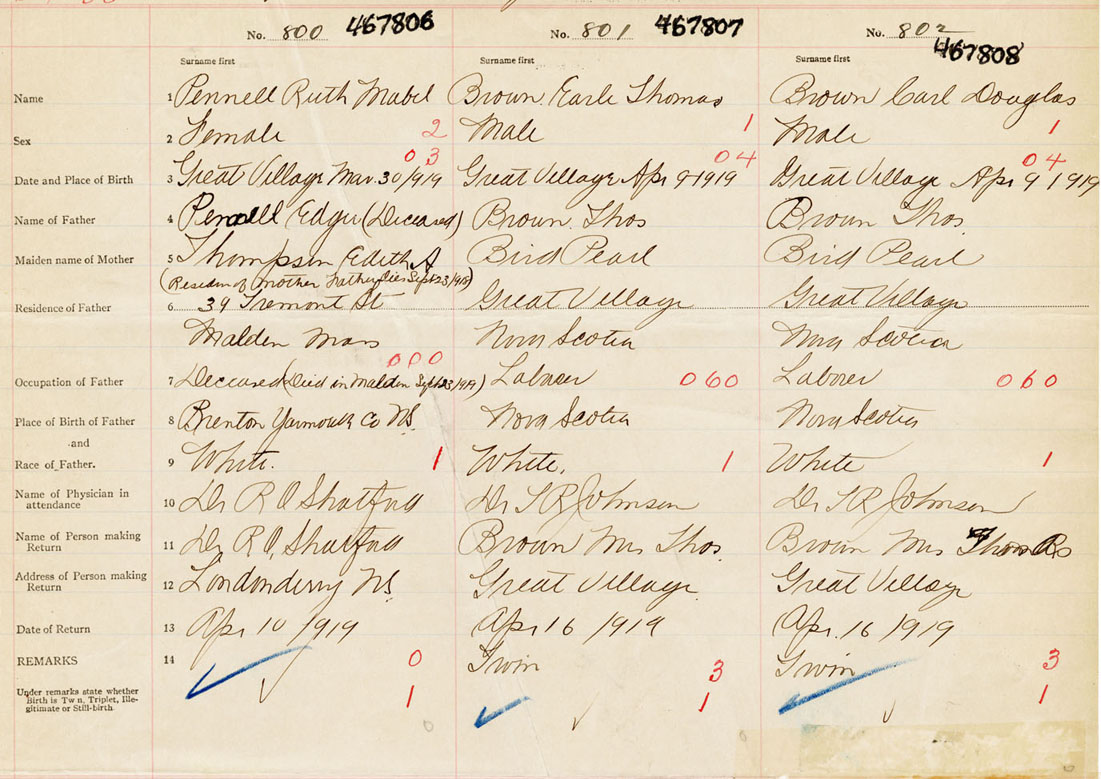 No. 800 467806 No. 801 467807 No. 802 467808
Surname first Surname first Surname first
Name 1 Pennell Ruth Mabel Brown Earle Thomas Brown Carl Douglas
Sex 2 Female 2 Male 1 Male 1
03 04 04
Date and Place of Birth 3 Great Village Mar. 30/919 Great Village Apr 9 1919 Great Village Apr 9 1919
Name of Father 4 Pennell Edgar (Deceased) Brown Thos Brown Thos.
Maiden name of Mother 5 Thompson Edith A Bird Pearl Bird Pearl
(Residence of Mother Father dies Sept 23/918)
Residence of Father 6 39 Tremont St Great Village Great Village
Malden Mass Nova Scotia Nova Scotia
000
Occupation of Father 7 Deceased (Died in Malden Sept 23/919) Laborer 060 Laborer 060
Place of Birth of Father 8 Brenton Yarmouth Co NS. Nova Scotia Nova Scotia
and
Race of Father. 9 White. 1 White. 1 White 1
Name of Physician in
attendance 10 Dr R O Shatford Dr T R Johnson Dr T R Johnson
Name of Person making
Return 11 Dr R O Shatford Brown Mrs Thos. Brown Mrs Thos
Address of Person making
Return 12 Londonderry NS. Great Village Great Village
Date of Return 13 Apr 10/919 Apr 16/919 Apr. 16/919
REMARKS 14 0 Twin 3 Twin 3
Under remarks state whether
Birth is Twn, Triplet, Ille-
gitimate or Still-birth 1 1 1